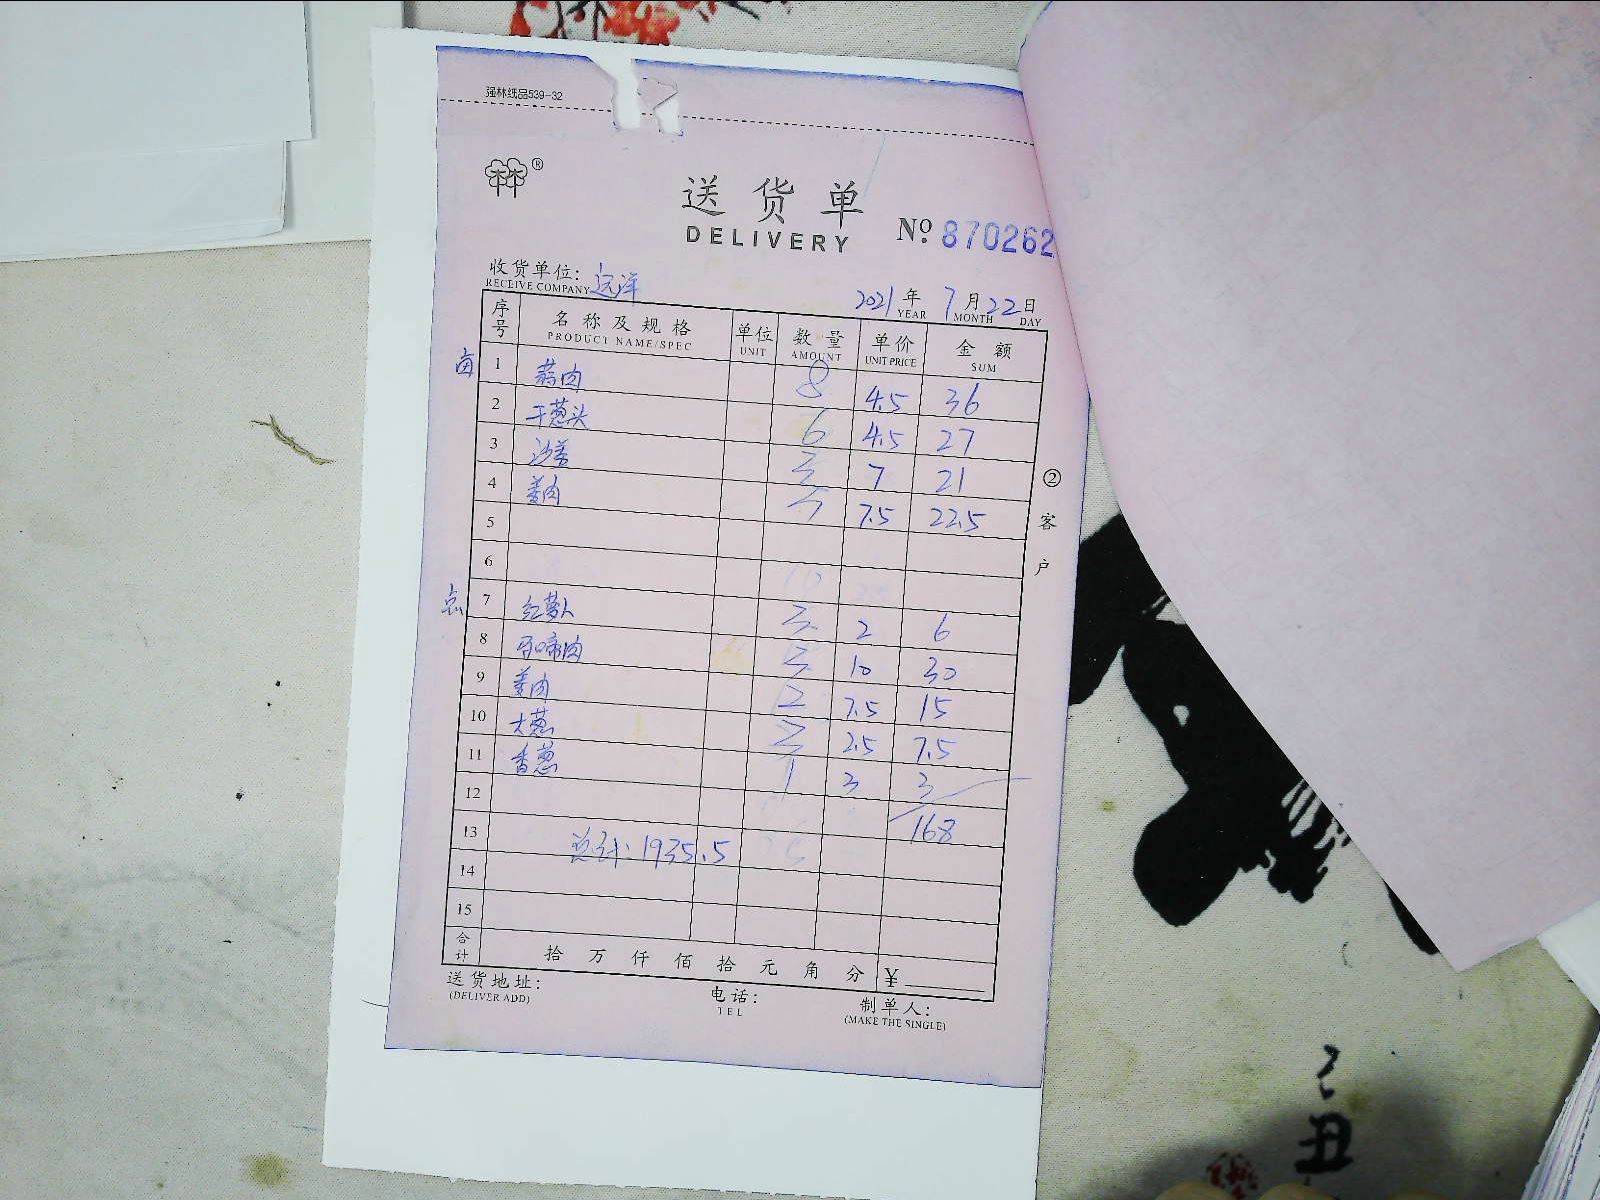 强林纸品539-32
林林®
送货单
DELIVERY
№ 870262
收货单位: 远洋
RECEIVE COMPANY
2021 年 7 月 22 日
YEAR MONTH DAY
序号 名称及规格 单位 数量 单价 金额
PRODUCT NAME/SPEC UNIT AMOUNT UNIT PRICE SUM
1 蒜肉 8 4.5 36
2 干葱头 6 4.5 27
3 沙姜 3 7 21
4 姜肉 3 7.5 22.5
5
6
点 7 红萝卜 3 2 6
8 马啼肉 3 10 30
9 姜肉 2 7.5 15
10 大葱 3 2.5 7.5
11 香葱 1 3 3
12 168
13 总计: 1935.5
14
15
合计 拾 万 仟 佰 拾 元 角 分 ¥
②客户
送货地址: 电话: 制单人:
(DELIVER ADD) TEL (MAKE THE SINGLE)
丑